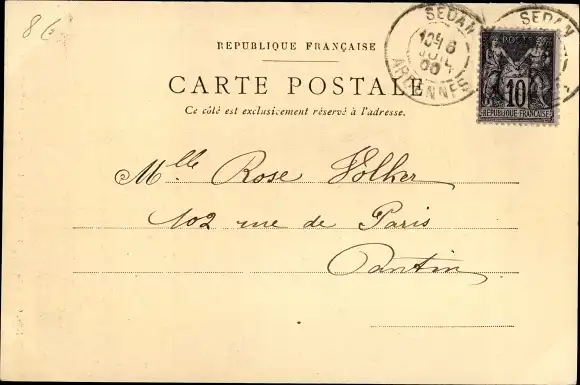 86
SEDAN
SEDAN
ARDENNES
POSTES
10
REPUBLIQUE FRANÇAISE
REPUBLIQUE FRANÇAISE
CARTE POSTALE
Ce côté est exclusivement réservé à l'adresse.
Mlle Rose Völker
102 rue de Paris
Pantin